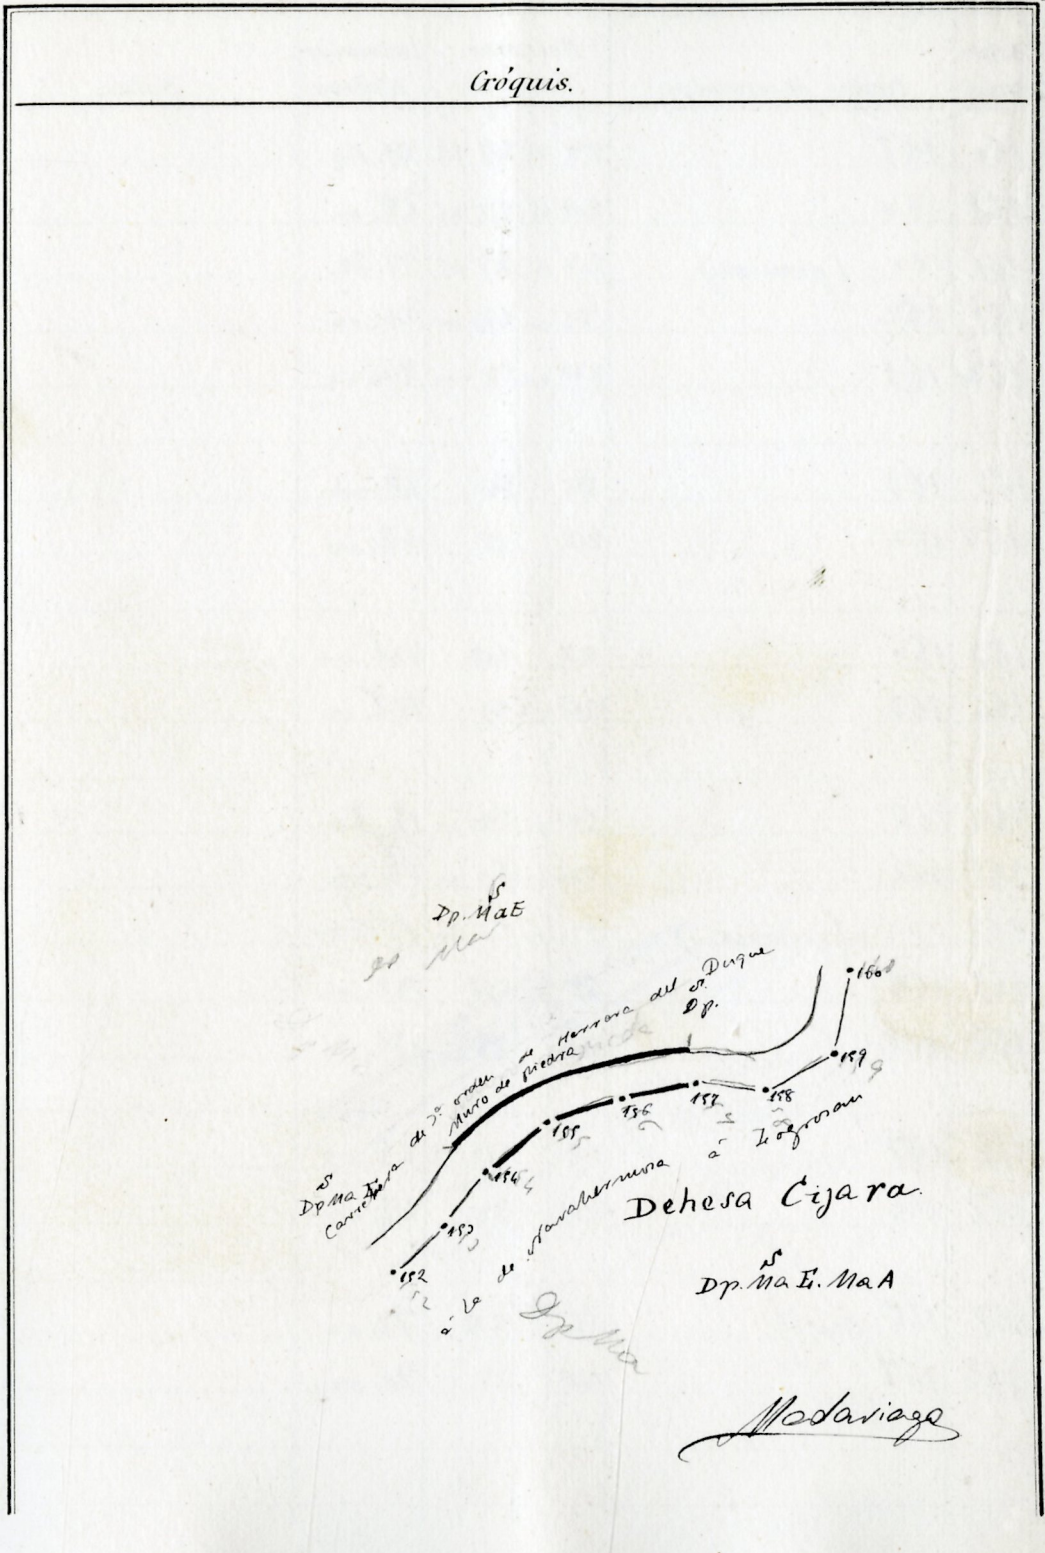 Cróquis.
Dp. Ma E
Dp Ma
Carretera de 3er orden de Herrera del Duque
Muro de piedra
Dp.
160
159
158
157
156
155
154
153
152
Dp Ma E
á la de Navahermosa á Logrosan
Dehesa Cijara.
Dp. Ma E. Ma A
Dp Ma
Madariaga